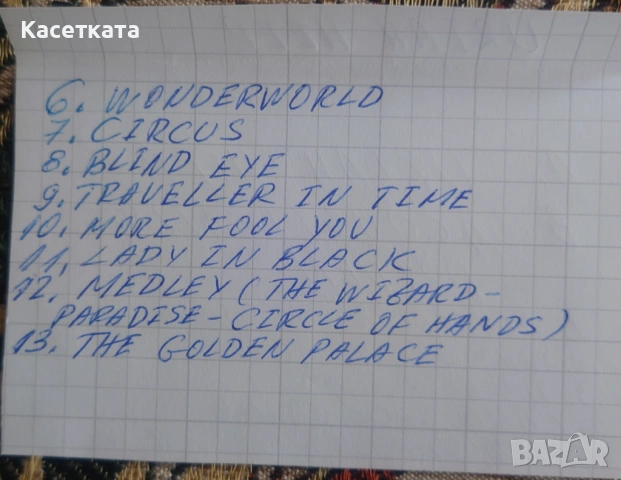 Касетката
6. WONDERWORLD
7. CIRCUS
8. BLIND EYE
9. TRAVELLER IN TIME
10. MORE FOOL YOU
11. LADY IN BLACK
12. MEDLEY (THE WIZARD-
PARADISE-CIRCLE OF HANDS)
13. THE GOLDEN PALACE
BAZAR